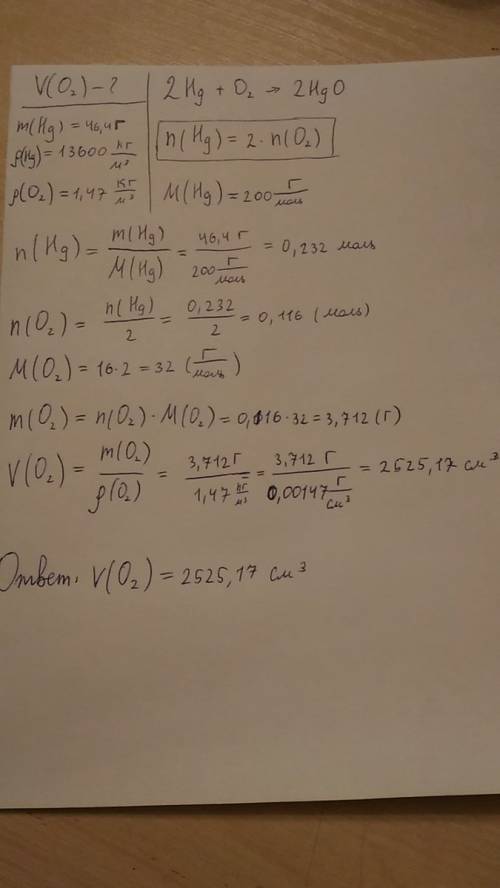 V(O₂) – ?
m(Hg) = 46,4 г
ρ(Hg) = 13600 кг/м³
ρ(O₂) = 1,47 кг/м³
2Hg + O₂ → 2HgO
n(Hg) = 2 · n(O₂)
M(Hg) = 200 г/моль
n(Hg) = m(Hg)/M(Hg) = 46,4 г/200 г/моль = 0,232 моль
n(O₂) = n(Hg)/2 = 0,232/2 = 0,116 (моль)
M(O₂) = 16·2 = 32 (г/моль)
m(O₂) = n(O₂) · M(O₂) = 0,116·32 = 3,712 (г)
V(O₂) = m(O₂)/ρ(O₂) = 3,712 г/1,47 кг/м³ = 3,712 г/0,00147 г/см³ = 2525,17 см³
Ответ: V(O₂) = 2525,17 см³